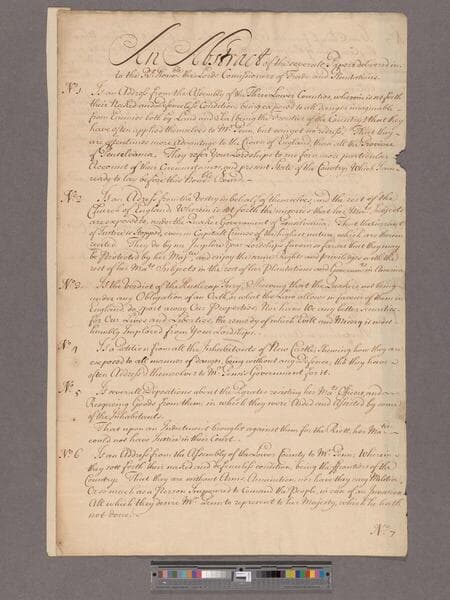 An Abstract of the severall Papers delivered in
to the Rt. Honble. the Lords Comissioners of Trade and Plantations.
No. 1 Is an Adress from the Assembly of the Three Lower Counties, wherein is set forth
their Naked and defenceless Condition being exposed to all dangers imaginable
from Enemies both by Land and Sea (being the Frontier of the Country) that they
have often applied themselves to Mr. Penn, but can get no redress. That they
are oftentimes more Advantage to the Crown of England, than all the Province
of Pensilvania. They refer your Lordships to me for a more particular
Account of their Circumstances and present State of the Country, Which I am
ready to lay before this Honble. Board.
No. 2 Is an Adress from the Vestry in behalf of themselves, and the rest of the
Church of England Wherein is set forth the that her Matys. Subjects
are exposed to, under the Quaker Government of Pensilvania. That the current
of Justice is Stopped, even in Capitall Crimes of the highest nature, which are therein
recited. They by me Implore Your Lordships favour so far as that they may
be Protected by her Majtie. and enjoy the same Rights and Priviledges with the
rest of her Matys. Subjects in the rest of her Plantations and Governmts. in America
No. 3 Is the Verdict of the Jury, Shewing that the Quakers not being
under any Obligation of an Oath, or what the Law allows in favour of them in
England, do part away Our Properties. Nor have We any better security
for Our Lives and Liberties, the remedy of which Evill and Misery is most
humbly Implored from Your Lordships.
No. 4 Is a Petition from all the Inhabitants of New Castle, Shewing how they are
exposed to all manner of danger, lying without any defence, tho they have
often Adressed themselves to Mr. Penn's Government for it.
No. 5 Is severall Depositions about the Pyrates resisting her Matys. Officers, and
Rescueing Goods from them, in which they were Aided and Assisted by some
of the Inhabitants.
That upon an Indictment brought against them for the Riott, her Matys.
could not have Justice in their Court.
No. 6 Is an Adress from the Assembly of the Lower County to Mr. Penn, Wherein
they sett forth their naked and defenceless condition, being the frontiers of the
Country. That they are without Arms, Amunition, nor have they any Militia
Or so much as a Person Impowered to Comand the People, in case of an Invasion
All which they desire Mr. Penn to represent to her Majesty, which he hath
not done.
No. 7